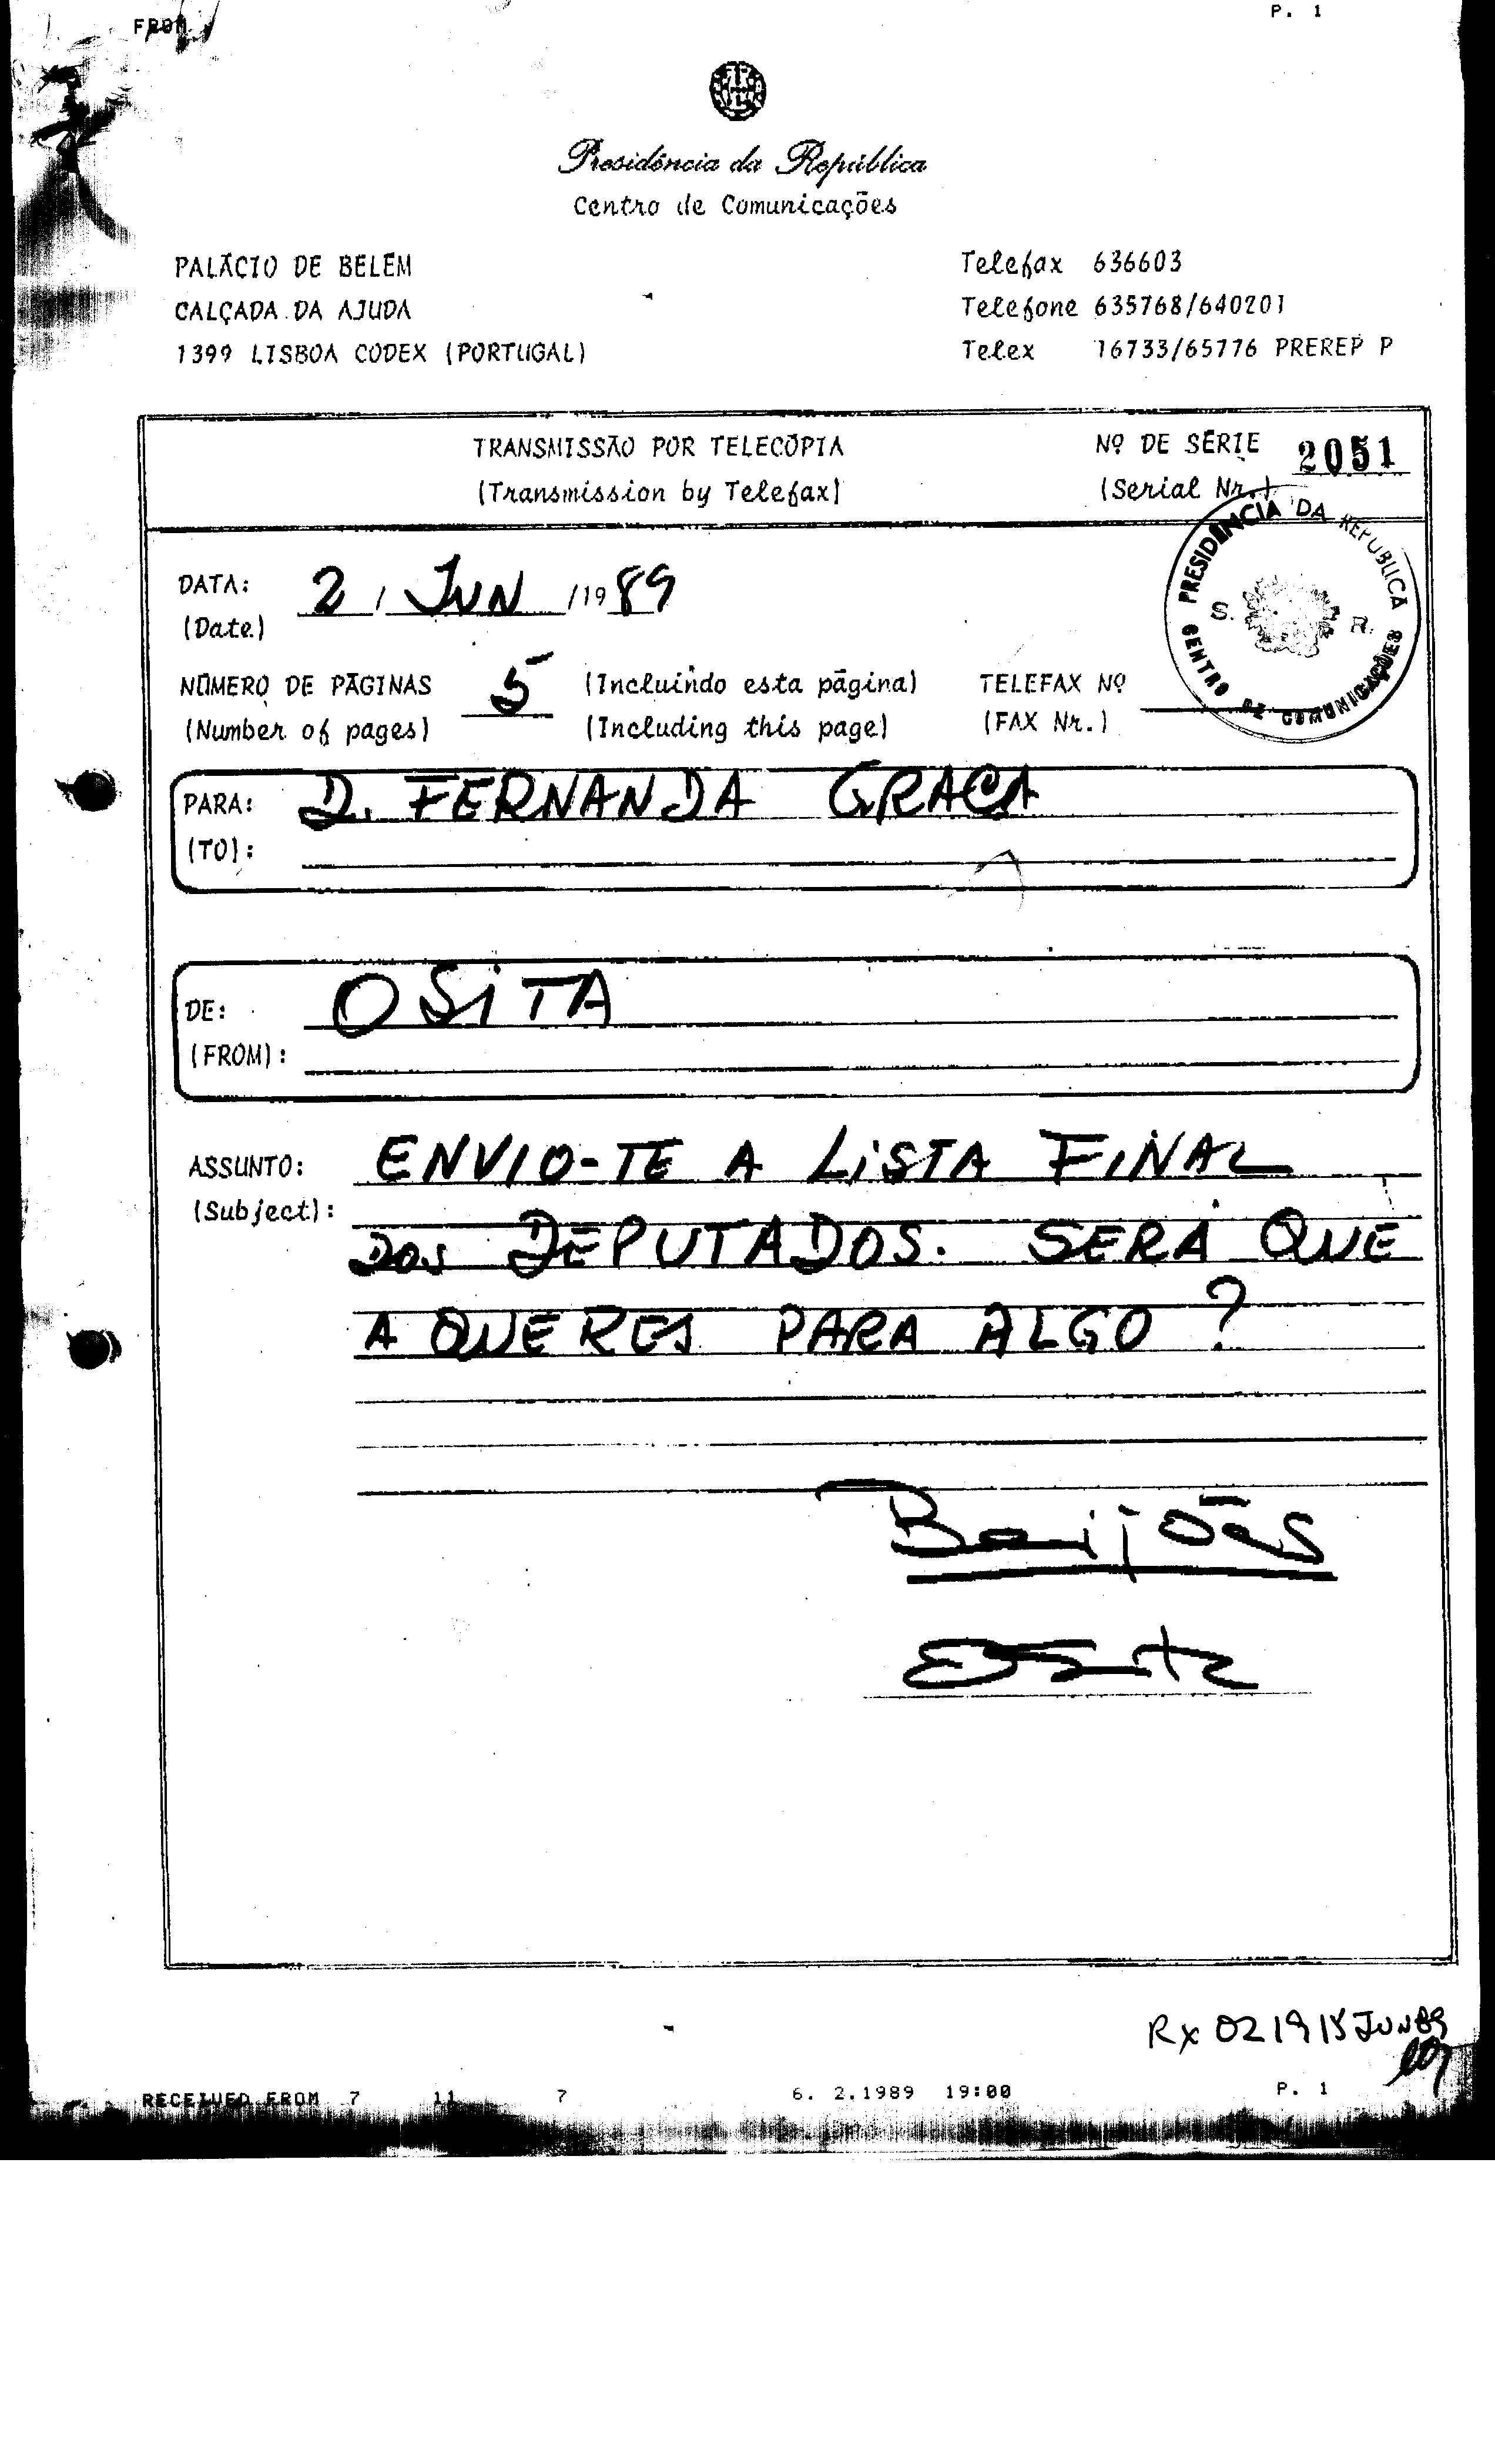 FROM
P. 1
Presidência da República
Centro de Comunicações
PALÁCIO DE BELÉM
CALÇADA DA AJUDA
1399 LISBOA CODEX (PORTUGAL)
Telefax 636603
Telefone 635768/640201
Telex 16733/65776 PREREP P
TRANSMISSÃO POR TELECÓPIA
(Transmission by Telefax)
Nº DE SÉRIE 2051
(Serial Nr.)
PRESIDÊNCIA DA REPÚBLICA
S. R.
CENTRO DE COMUNICAÇÕES
DATA: 2 / JUN /1989
(Date)
NÚMERO DE PÁGINAS 5 (Incluindo esta página) TELEFAX Nº
(Number of pages) (Including this page) (FAX Nr.)
PARA: D. FERNANDA GRAÇA
(TO):
DE: OSITA
(FROM):
ASSUNTO: ENVIO-TE A LISTA FINAL
(Subject):
DOS DEPUTADOS. SERÁ QUE
A QUERES PARA ALGO?
Beijões
Rx 021915JUN89
RECEIVED FROM 7 11 7 6. 2.1989 19:00 P. 1